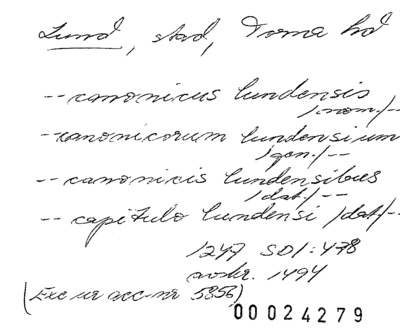 Lund, stad, Torna hd
-- canonicus lundensis
/nom./--
-- canonicorum lundensium
/gen./--
-- canonicis lundensibus
/dat./--
-- capitulo lundensi /dat./--
1247 SD1:478
avskr. 1494
(Exc ur acc-nr 5856)
00024279